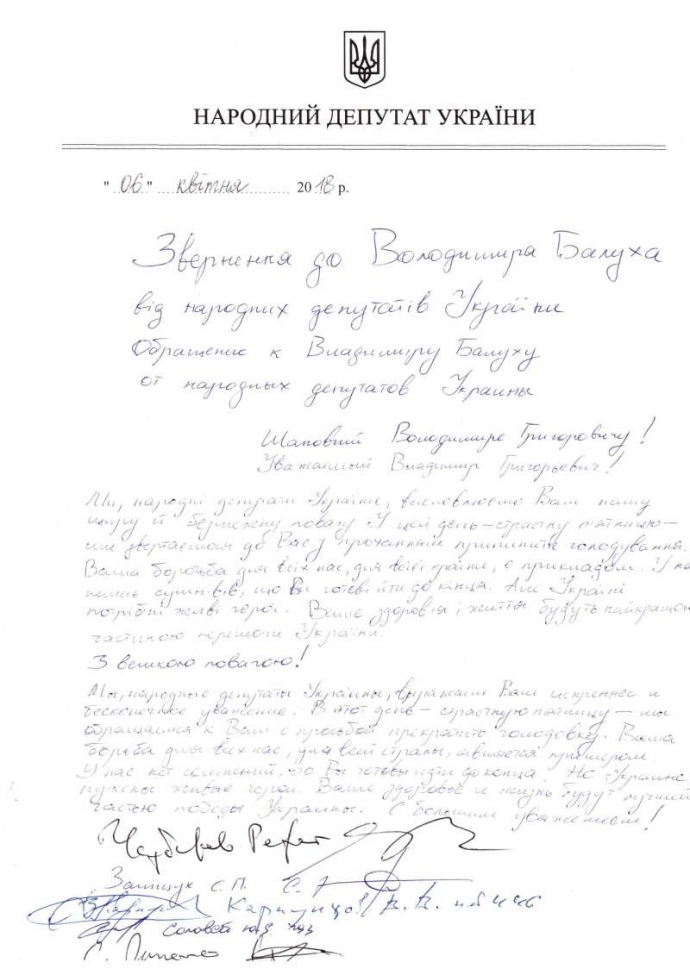 НАРОДНИЙ ДЕПУТАТ УКРАЇНИ
"06" квітня 2018 р.
Звернення до Володимира Балуха
від народних депутатів України
Обращение к Владимиру Балуху
от народных депутатов Украины
Шановний Володимире Григоровичу!
Уважаемый Владимир Григорьевич!
Ми, народні депутати України, висловлюємо Вам нашу
щиру й безмежну повагу. У цей день – страсну п'ятницю –
ми звертаємося до Вас з проханням припинити голодування.
Ваша боротьба для всіх нас, для всієї країни, є прикладом. У нас
немає сумнівів, що Ви готові йти до кінця. Але Україні
потрібні живі герої. Ваше здоров'я і життя будуть найкращою
частиною перемоги України.
З великою повагою!
Мы, народные депутаты Украины, выражаем Вам искреннее и
бесконечное уважение. В этот день – страстную пятницу – мы
обращаемся к Вам с просьбой прекратить голодовку. Ваша
борьба для всех нас, для всей страны, является примером.
У нас нет сомнений, что Вы готовы идти до конца. Но Украине
нужны живые герои. Ваше здоровье и жизнь будут лучшей
частью победы Украины. С большим уважением!
Чубаров Рефат
Заліщук С. П.
Соловей Ю.